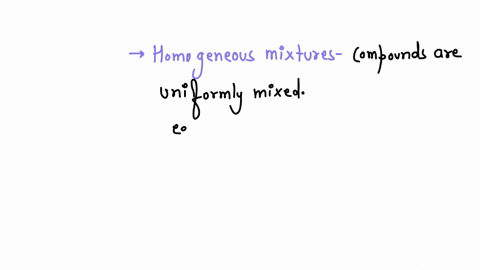 → Homogeneous mixtures- Compounds are
uniformly mixed.
eo